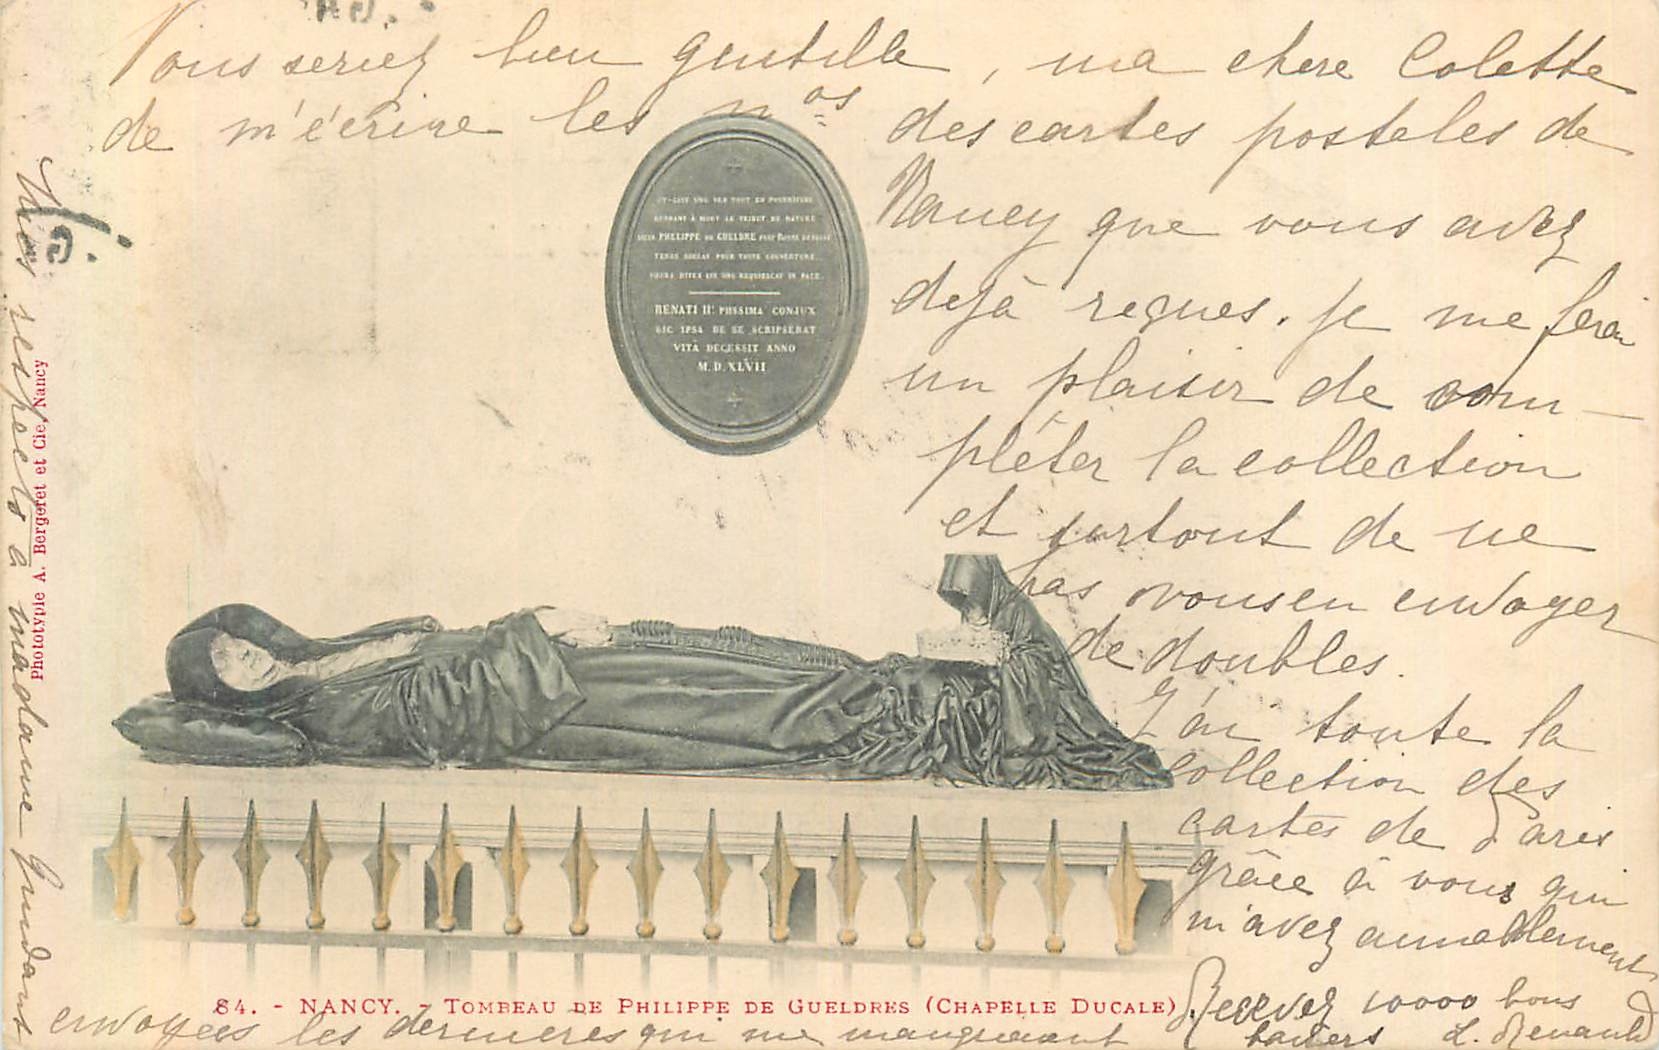 Vous seriez bien gentille, ma chere Colette
de m'écrire les nos des cartes postales de
Nancy que vous avez
dejà reçues. je me ferai
un plaisir de com-
pléter la collection
et surtout de ne
pas vous en envoyer
de doubles.
J'ai toute la
collection des
cartes de Paris
grâce à vous qui
m'avez aimablement
envoyées les dernieres qui me manquaient
Recevez 10000 bons
baisers L. Renauld
Mes respects à madame
CY-GIST UNG VER TOUT EN POURRITURE
RENDANT À MORT LE TRIBUT DE NATURE
SŒUR PHELIPPE DE GUELDRE FUST ROYNE
TERRE SOULAS POUR TOUTE COUVERTURE.
SŒURS DITES LUY UNG REQUIESCAT IN PACE.
RENATI II! PIISSIMA CONJUX
SIC IPSA DE SE SCRIPSERAT
VITÀ DECESSIT ANNO
M.D.XLVII
Phototypie A. Bergeret et Cie, Nancy
84. - NANCY. - TOMBEAU DE PHILIPPE DE GUELDRES (CHAPELLE DUCALE)